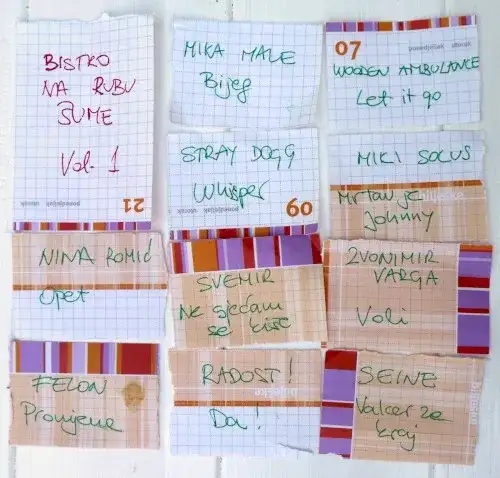 BISTRO
NA RUBU
ŠUME
Vol. 1
21
ponedjeljak utorak
MIKA MALE
Bijeg
07
ponedjeljak utorak
WOODEN AMBULANCE
Let it go
STRAY DOGG
Whisper
09
ponedjeljak utorak
MIKI SOLUS
Mrtav je
Johnny
NINA ROMIĆ
Opet
SVEMIR
Ne sjećam
se kiše
ZVONIMIR
VARGA
Voli
FELON
Promjene
RADOST!
bilješke
Da!
SEINE
Valcer za
kraj